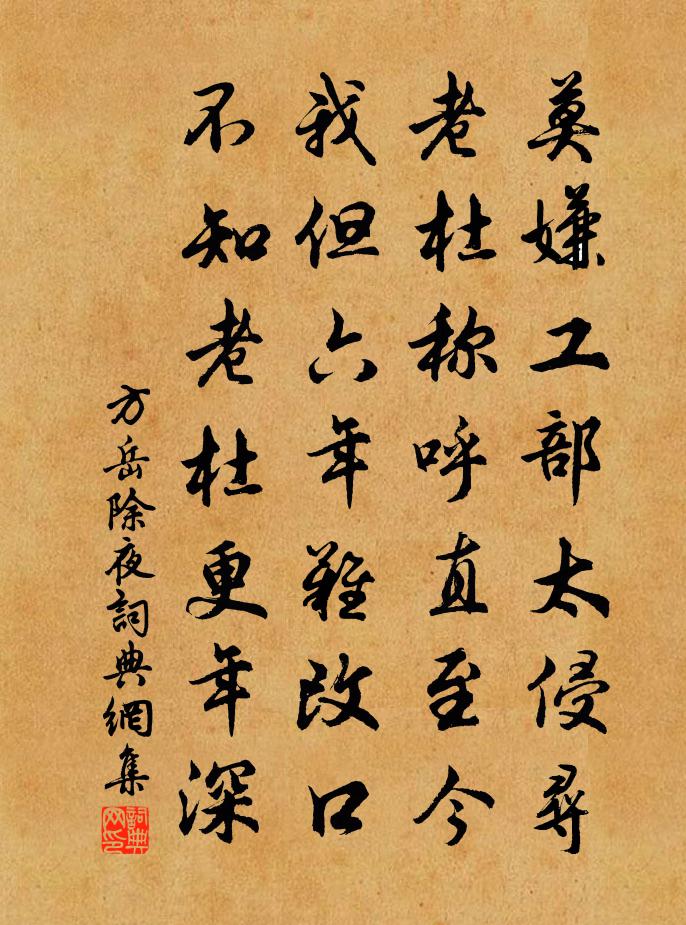 莫嫌工部太侵尋
老杜称呼直至今
我但六年難改口
不知老杜更年深
方岳除夜詞典網集
詞典網印